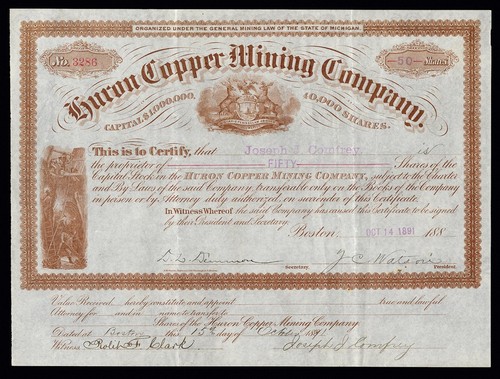 ORGANIZED UNDER THE GENERAL MINING LAW OF THE STATE OF MICHIGAN.
No. 3286
—50— Shares
Huron Copper Mining Company.
CAPITAL $1,000,000. 40,000 SHARES.
This is to Certify, that Joseph J Comfrey. is
the proprietor of FIFTY Shares of the
Capital Stock in the HURON COPPER MINING COMPANY, subject to the Charter
and By Laws of the said Company, transferable only on the Books of the Company
in person or by Attorney duly authorized, on surrender of this Certificate.
In Witness Whereof the said Company has caused this Certificate to be signed
by their President and Secretary.
Boston OCT 14 1891 188
Secretary. President
Value Received hereby constitute and appoint true and lawful
Attorney for and in name to transfer to
Shares of the Huron Copper Mining Company
Dated at Boston this 15th day of October 1891
Witness Clark Joseph J Comfrey